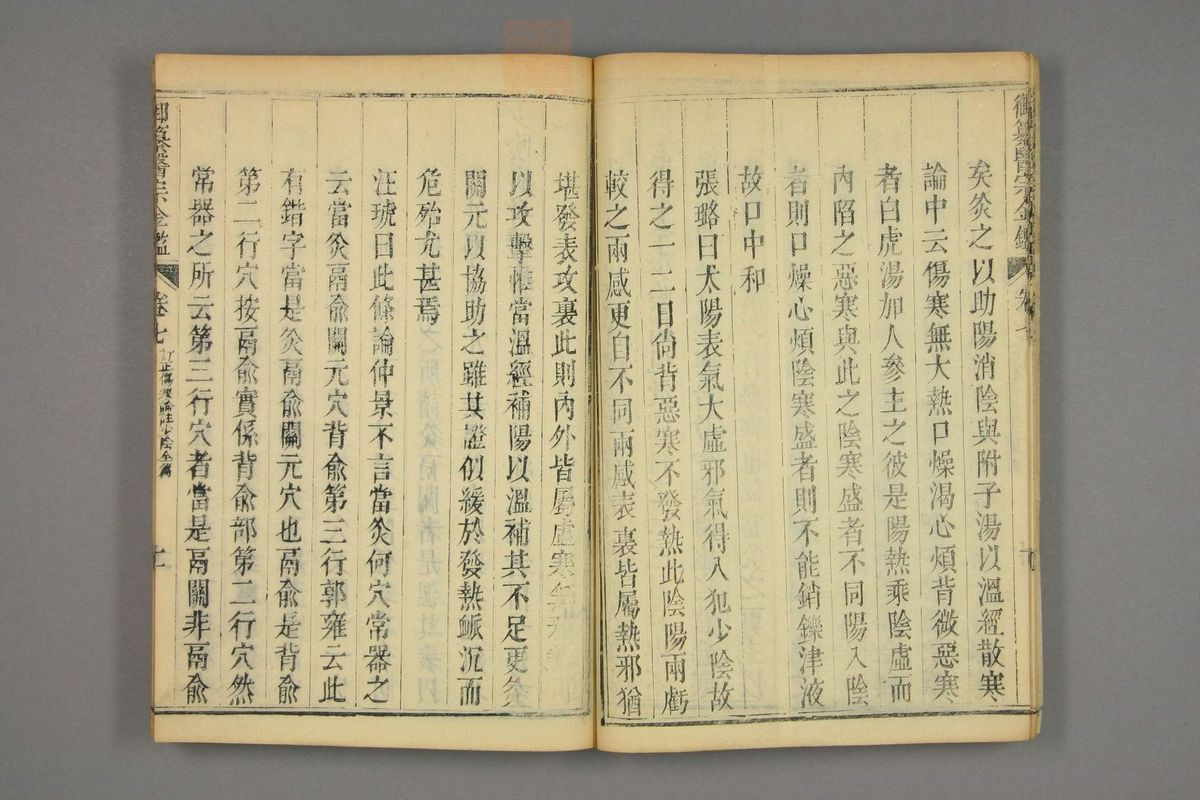 御纂醫宗金鑑 卷七
矣灸之以助陽消陰與附子湯以溫經散寒
論中云傷寒無大熱口燥渴心煩背微惡寒
者白虎湯加人參主之彼是陽熱乘陰虛而
內陷之惡寒與此之陰寒盛者不同陽入陰
者則口燥心煩陰寒盛者則不能銷鑠津液
故口中和
張璐曰太陽表氣大虛邪氣得入犯少陰故
得之一二日尙背惡寒不發熱此陰陽兩虧
較之兩感更自不同兩感表裏皆屬熱邪猶
堪發表攻裏此則內外皆屬虛寒無
以攻擊惟當溫經補陽以溫補其不足更灸
關元以協助之雖其證似緩於發熱脈沉而
危殆尤甚焉
汪琥曰此條論仲景不言當灸何穴常器之
云當灸鬲兪關元穴背兪第三行郭雍云此
有錯字當是灸鬲兪關元穴也鬲兪是背兪
第二行穴按鬲兪實係背兪部第二行穴然
常器之所云第三行穴者當是鬲關非鬲兪
御纂醫宗金鑑 卷七 訂正傷寒論註少陰全篇 十